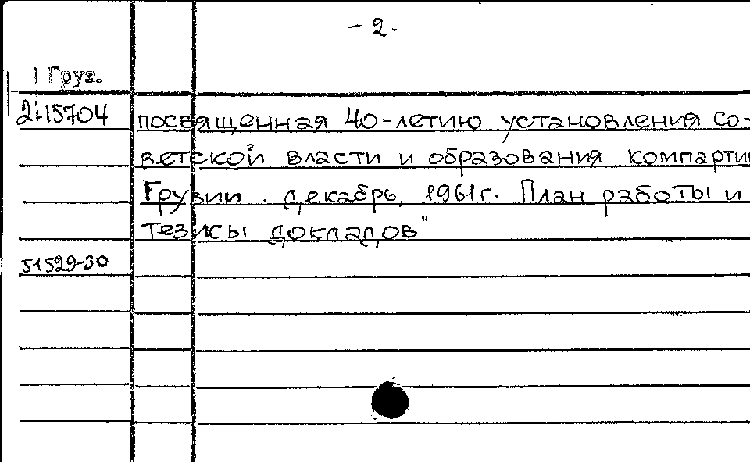 - 2 -
1 Груз.
2:15704
посвященная 40-летию установления Со-
ветской власти и образования компартии
Грузии. декабрь, 1961г. План работы и
тезисы докладов"
51529-30